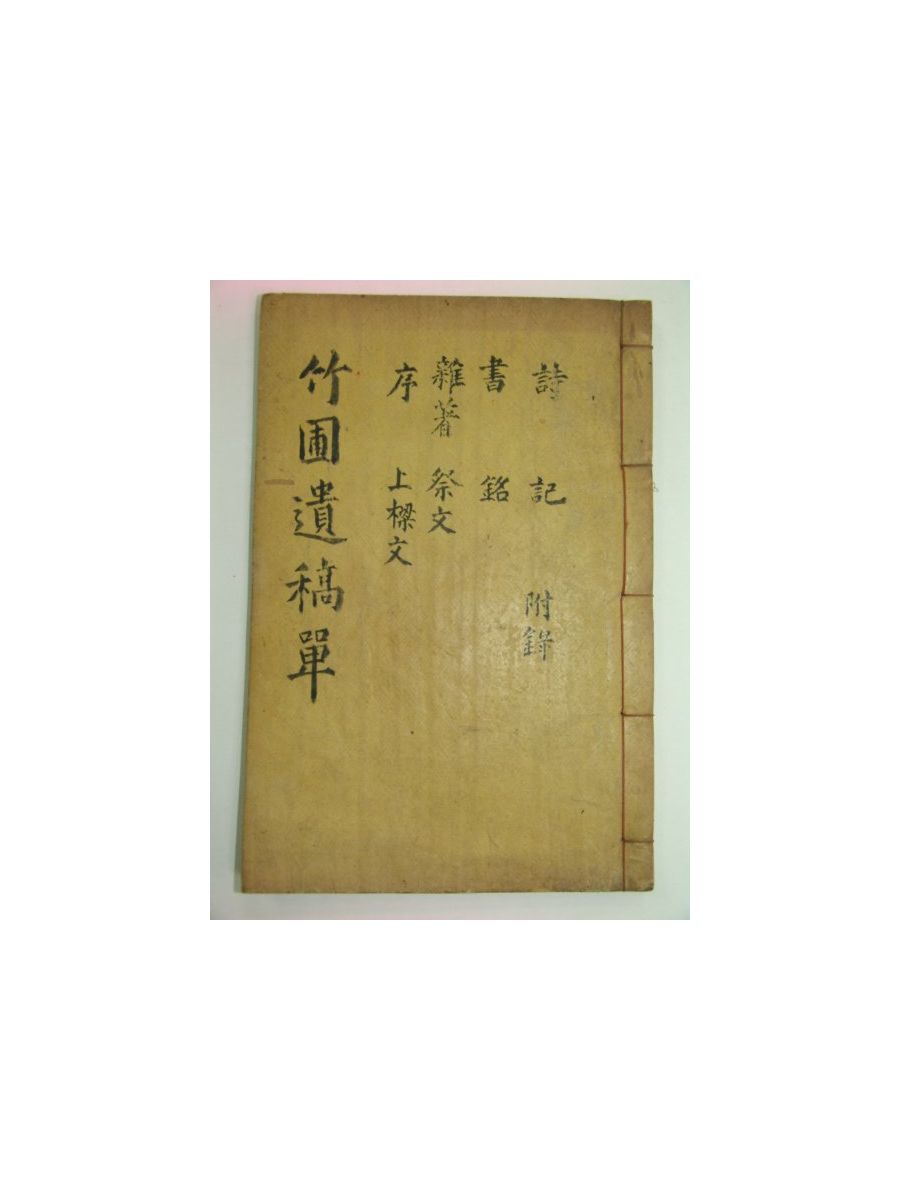 詩
書
雜著
序
記
銘
祭文
上樑文
附錄
竹圃遺稿單